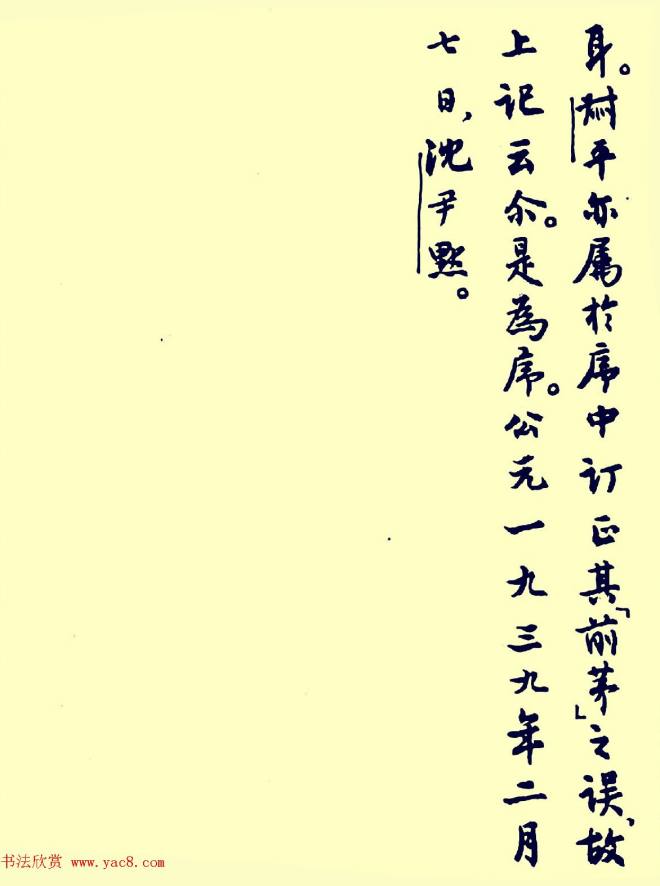 耳。尉平亦属於序中订正其「前茅」之误，故
上记云尒。是为序。公元一九三九年二月
七日，沈尹默。
书法欣赏 www.yac8.com